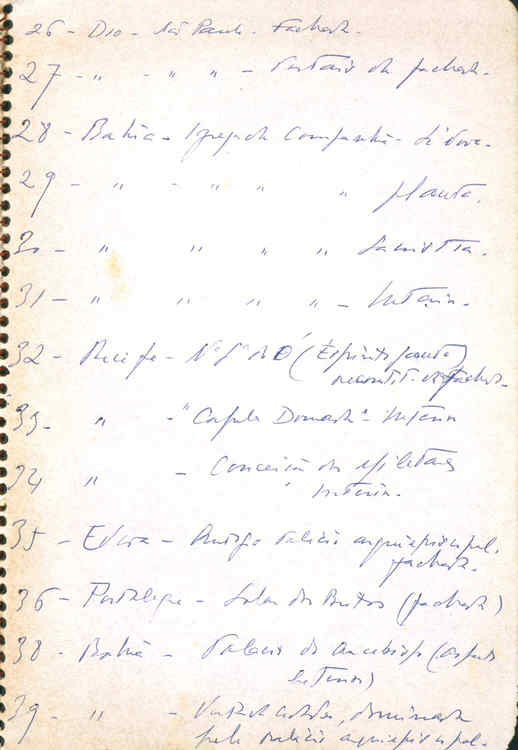 26 - Dio - São Paulo. Fachada.
27 - " - " " - Portais da fachada.
28 - Bahia - Igreja da Companhia -
29 - " - " " " planta.
30 - " " " " Sacristia.
31 - " " " " - Interior.
32 - Recife - Nª Sª do Ó (Espírito Santo)
fachada.
33 - " - "Capela Dourada" - Interior
34 " - Conceição dos Militares
Interior.
35 - Évora - Antigo Palácio arquiepiscopal.
fachada.
36 - Portalegre - Solar dos (fachada)
38 - Bahia - Palácio do Arcebispo (aspecto
interior)
39 - " - dominada
pelo palácio arquiepiscopal.